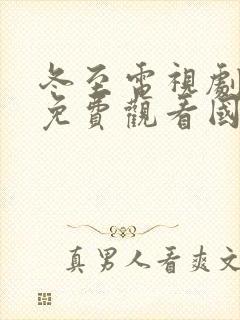 冬至電視劇
免費觀看國
真男人看爽文